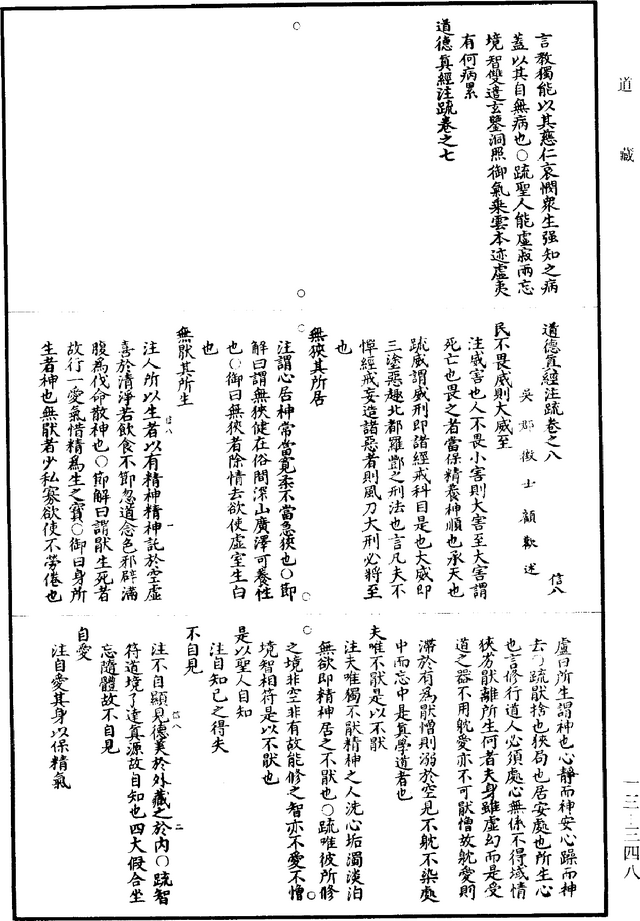 道藏
言教獨能以其慈仁哀憫衆生强知之病
蓋以其自無病也○疏聖人能虛寂兩忘
境智雙遣玄鑒洞照御氣乘雲本迹虛夷
有何病累
道德真經注疏卷之七
道德真經注疏卷之八
信八
吳郡徵士顧歡述
民不畏威則大威至
注威害也人不畏小害則大害至大害謂
死亡也畏之者當保精養神順也承天也
疏威謂威刑即諸經戒科目是也大威即
三塗惡趣北都羅酆之刑法也言凡夫不
憚經戒妄造諸惡者則風刀大刑必將至
也
無狹其所居
注謂心居神常當寬柔不當急狹也○節
解曰謂無狹健在俗間深山廣澤可養性
也○御曰無狹者除情去欲使虛室生白
也
無猒其所生
注人所以生者以有精神精神託於空虛
喜於清淨若飲食不節忽道念色邪僻滿
腹爲伐命散神也○節解曰謂猒生死者
故行一愛氣惜精爲生之寶○御曰身所
生者神也無猒者少私寡欲使不勞倦也
信八
一
盧曰所生謂神也心靜而神安心躁而神
去○疏猒捨也狹局也居安處也所生心
也言修行道人必須處心無係不得域情
狹劣猒離所生何者夫身雖虛幻而是受
道之器不用躭愛亦不可猒憎故躭愛則
滯於有爲猒憎則溺於空見不躭不染處
中而忘中是真學道者也
夫唯不猒是以不猒
注夫唯獨不猒精神之人洗心垢濁淡泊
無欲即精神居之不猒也○疏唯彼所修
之境非空非有故能修之智亦不愛不憎
境智相符是以不猒也
是以聖人自知
注自知己之得失
不自見
注不自顯見德美於外藏之於內○疏智
符道境了達真源故自知也四大假合坐
忘隨體故不自見
自愛
注自愛其身以保精氣
信八
二
一三‧三四八